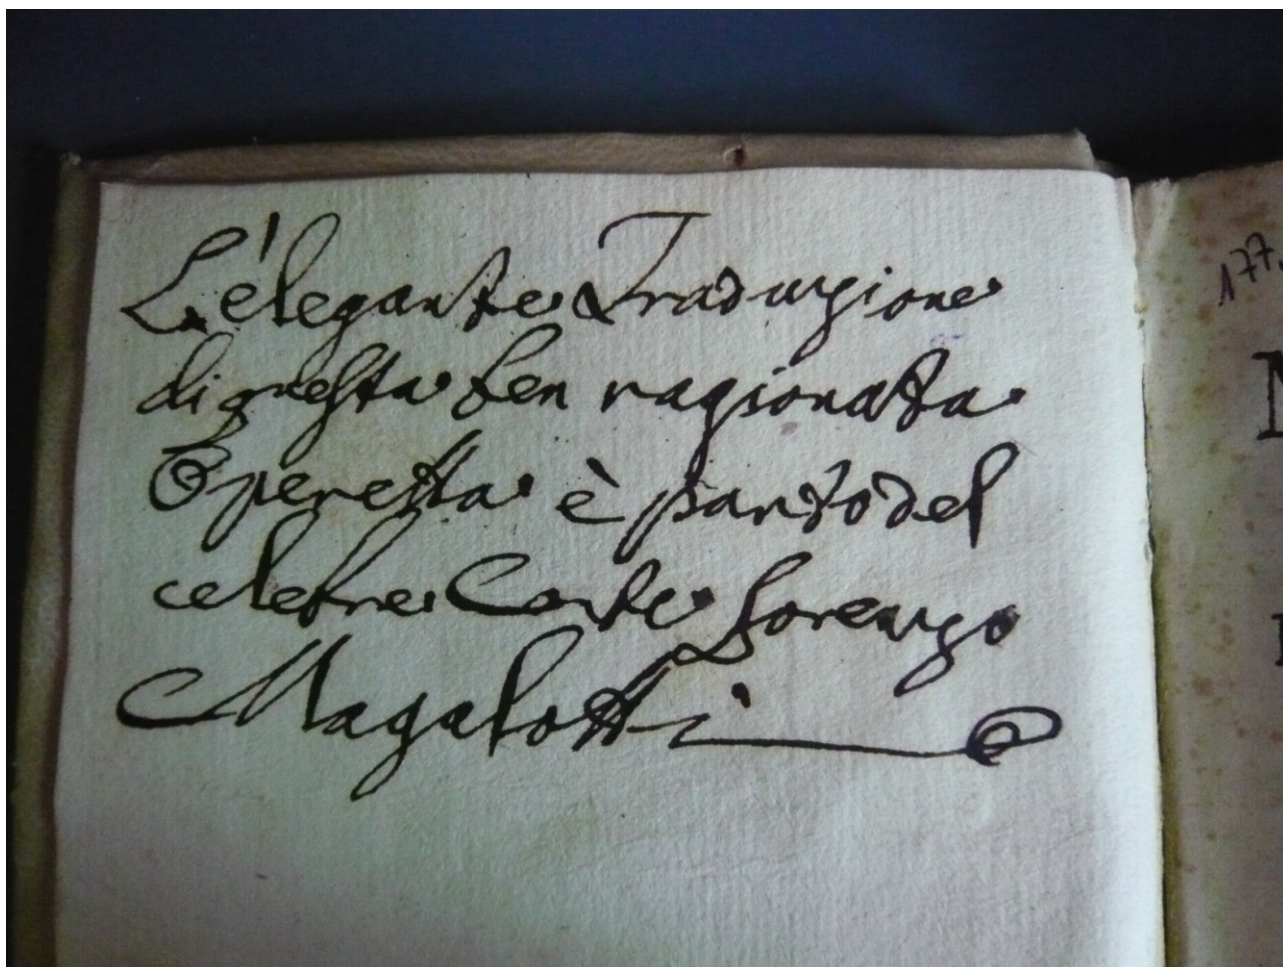 L'elegante Traduzione
di questa ben ragionata
Operetta è parto del
celebre Conte Lorenzo
Magalotti
177.